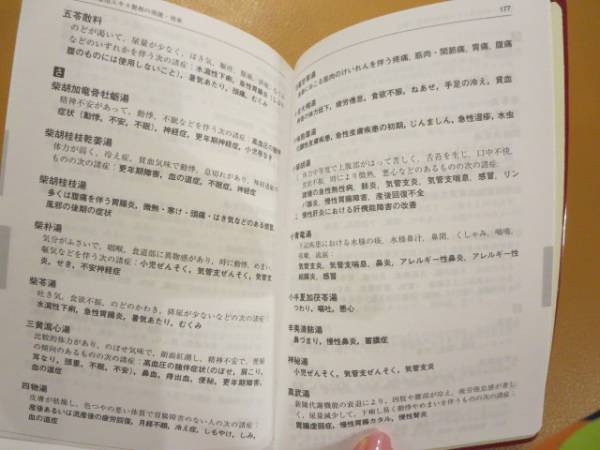 五苓散料
のどが渇いて、尿量が少なく、はき気、嘔吐、
などのいずれかを伴う次の諸症：水瀉性下痢、急性胃腸炎
腹のものには使用しないこと）、暑気あたり、頭痛、むくみ
さ
柴胡加竜骨牡蛎湯
精神不安があって、動悸、不眠などを伴う次の諸症：高血圧の
症状（動悸、不安、不眠）、神経症、更年期神経症、小児夜なき
柴胡桂枝乾姜湯
体力が弱く、冷え症、貧血気味で動悸、息切れがあり、神経過敏の
ものの次の諸症：更年期障害、血の道症、不眠症、神経症
柴胡桂枝湯
多くは腹痛を伴う胃腸炎、微熱・寒け・頭痛・はき気などのある感冒、
風邪の後期の症状
柴朴湯
気分がふさいで、咽喉、食道部に異物感があり、時に動悸、めまい、
嘔気などを伴う次の諸症：小児ぜんそく、気管支ぜんそく、気管支
炎、せき、不安神経症
柴苓湯
吐き気、食欲不振、のどのかわき、排尿が少ないなどの次の諸症：
水瀉性下痢、急性胃腸炎、暑気あたり、むくみ
三黄瀉心湯
比較的体力があり、のぼせ気味で、顔面紅潮し、精神不安で、便秘
の傾向のあるものの次の諸症：高血圧の随伴症状（のぼせ、肩こり、
耳なり、頭重、不眠、不安）、鼻血、痔出血、便秘、更年期障害、
血の道症
四物湯
皮膚が枯燥し、色つやの悪い体質で胃腸障害のない人の次の諸症：
産後あるいは流産後の疲労回復、月経不順、冷え症、しもやけ、しみ、
血の道症
177
筋肉のけいれんを伴う疼痛、筋肉・関節痛、胃痛、腹痛
体力低下、疲労倦怠、食欲不振、ねあせ、手足の冷え、貧血
急性皮膚疾患の初期、じんましん、急性湿疹、水虫
体力中等度で上腹部がはって苦しく、舌苔を生じ、口中不快、
食欲不振、時により微熱、悪心などのあるものの次の諸症：
諸種の急性熱性病、肺炎、気管支炎、気管支喘息、感冒、リン
パ腺炎、慢性胃腸障害、産後回復不全
慢性肝炎における肝機能障害の改善
小青竜湯
下記疾患における水様の痰、水様鼻汁、鼻閉、くしゃみ、喘鳴、
咳嗽、流涙：
気管支炎、気管支喘息、鼻炎、アレルギー性鼻炎、アレルギー性
結膜炎、感冒
小半夏加茯苓湯
つわり、嘔吐、悪心
辛夷清肺湯
鼻つまり、慢性鼻炎、蓄膿症
神秘湯
小児ぜんそく、気管支ぜんそく、気管支炎
真武湯
新陳代謝機能の衰退により、四肢や腰部が冷え、疲労倦怠感が著し
く、尿量減少して、下痢し易く動悸やめまいを伴うものの次の諸症：
胃腸虚弱症、慢性胃腸カタル、慢性腎炎